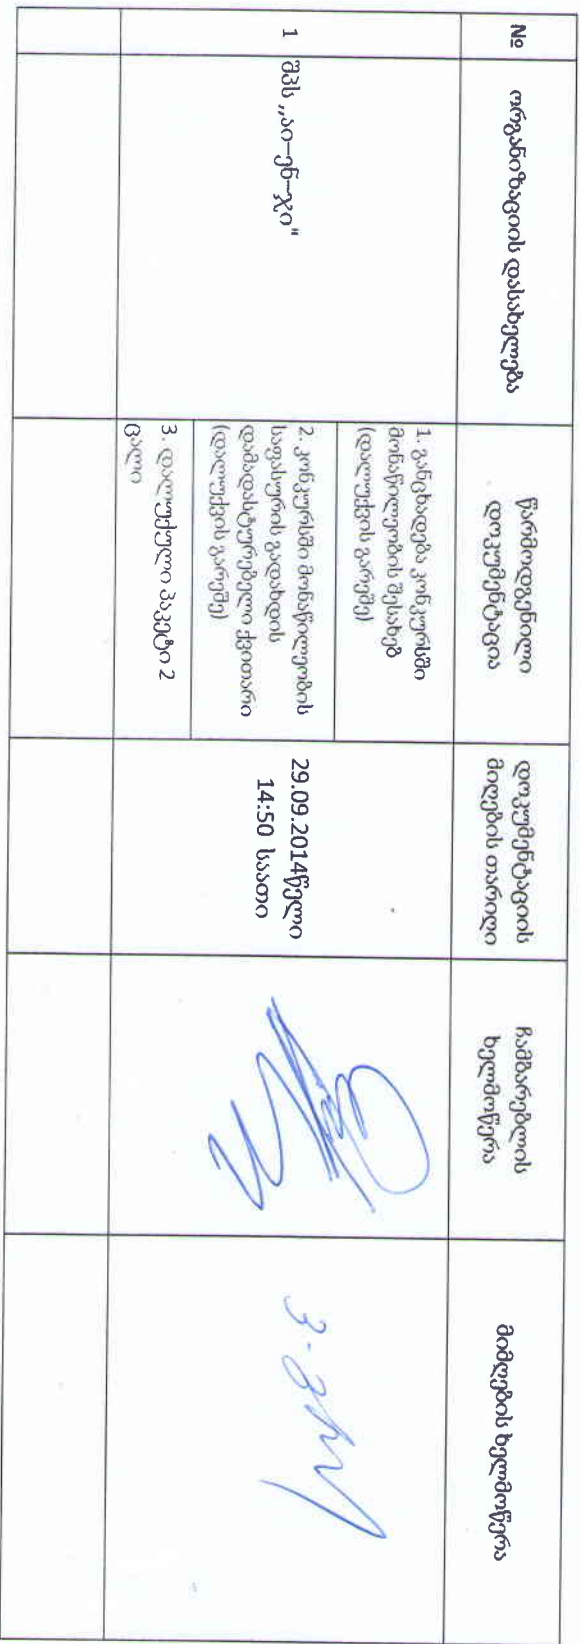 №
ორგანიზაციის დასახელება
წარმოდგენილი
დოკუმენტაცია
დოკუმენტაციის
მიღების თარიღი
ჩამბარებლის
ხელმოწერა
მიმღების ხელმოწერა
1
შპს „აი-ენ-ჯი"
1. განცხადება კონკურსში
მონაწილეობის შესახებ
(დალუქვის გარეშე)
2. კონკურსში მონაწილეობის
საფასურის გადახდის
დამადასტურებელი ქვითარი
(დალუქვის გარეშე)
3. დალუქული პაკეტი 2
ცალი
29.09.2014წელი
14:50 საათი